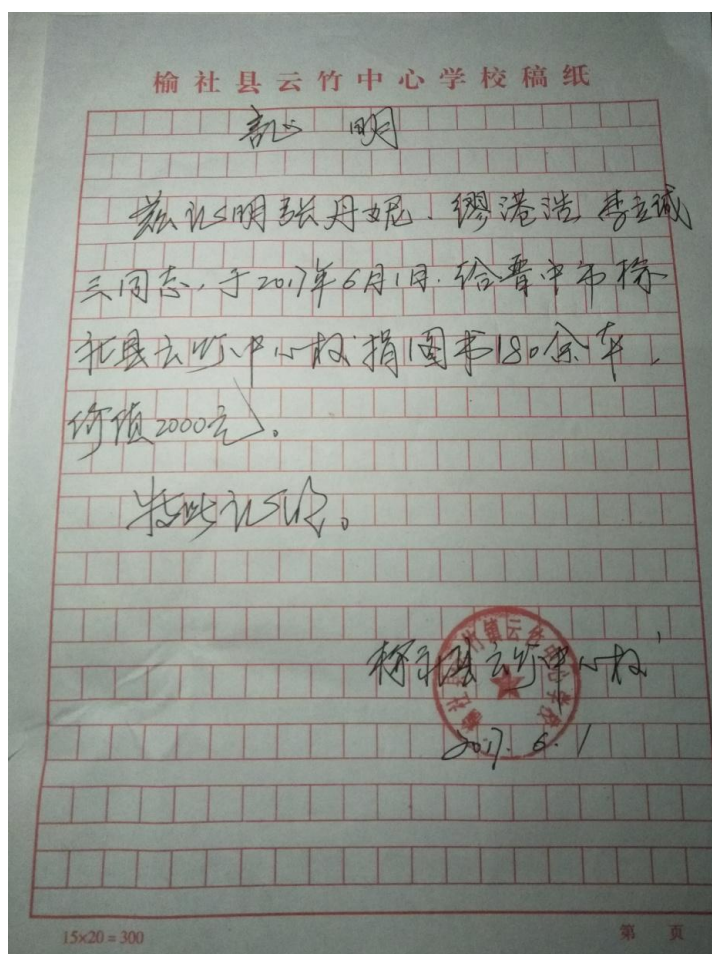 榆社县云竹中心学校稿纸
证 明
兹证明张丹妮、缪港浩 李立诚
三同志,于2017年6月1日,给晋中市榆
社县云竹中心校捐图书180余本,
价值2000元。
特此证明。
榆社县云竹中心校
榆社县云竹镇云竹中心学校
2017.6.1
15×20=300
第 页